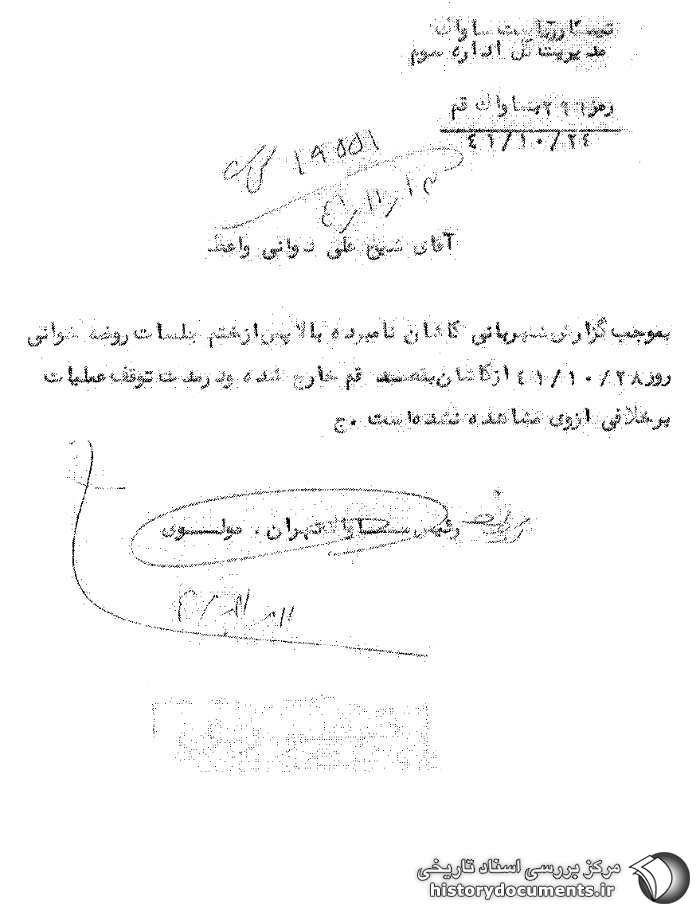 تیمسار ریاست ساواک
مدیریت کل اداره سوم
رمز ٢٩٦ بساواک قم
٤١/١٠/٢٤
١٩٥٥١
٤١/١١/١٣
آقای شیخ علی دوانی واعظ
بموجب گزارش شهربانی کاشان نامبرده بالا پس از ختم جلسات روضه خوانی
روز ٤١/١٠/٢٨ از کاشان بقصد قم خارج شده و در مدت توقف عملیات
بر خلافی از وی مشاهده نشده است . ج
رئیس ساواک تهران . مولوی
مرکز بررسی اسناد تاریخی
historydocuments.ir